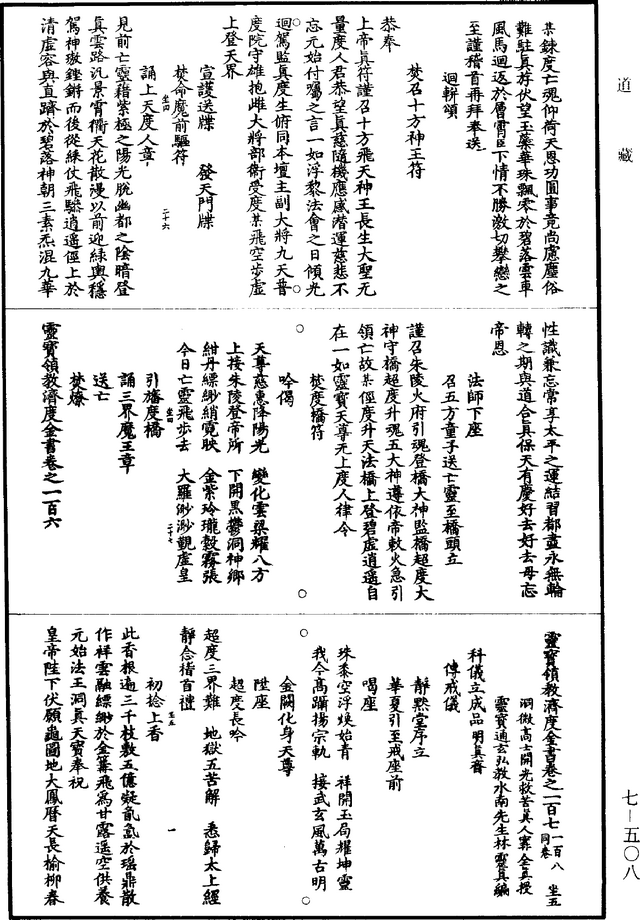 道藏
某銖度亡魂仰荷天恩功圓事竟尚慮塵俗
難駐真斿伏望玉蘂華珠飄零於碧落雲車
風馬迴返於層霄臣下情不勝激切攀戀之
至謹稽首再拜奉送
迴軿頌
焚召十方神王符
恭奉
上帝真符謹召十方飛天神王長生大聖无
量度人君恭望真慈隨機應感潛運慈悲不
忘元始付囑之言一如浮黎法會之日傾光
迴駕監真度生俯同本壇主副大將九天普
度院守雄抱雌大將部衛受度某飛空步虛
上登天界
宣護送牒　發天門牒
焚命魔前驅符
誦上天度人章
坐四　二十六
見前亡靈藉紫極之陽光脫幽都之陰暗登
真雲路汎景霄衢天花散漫以前迎綠輿穩
駕神璈鏗鏘而後從絳仗飛驂逍遥徑上於
清虛容與直躋於碧落神朝三素炁混九華
性識兼忘常享太平之運結習都盡永無輪
轉之期與道合真保天有慶好去好去毋忘
帝恩
法師下座
召五方童子送亡靈至橋頭立
謹召朱陵火府引魂登橋大神監橋超度大
神守橋超度升魂五大神遵依帝敕火急引
領亡故某徑度升天法橋上登碧虛逍遥自
在一如靈寶天尊无上度人律令
焚度橋符
吟偈
天尊慈惠降陽光　變化雲梁耀八方
上接朱陵登帝所　下開黑鬱洞神鄉
紺丹縹緲綃霓映　金紫玲瓏縠霧張
今日亡靈飛步去　大羅渺渺覲虛皇
引旛度橋
坐四　二十七
誦三界魔王章
送亡
焚燎
靈寶領教濟度金書卷之一百六
靈寶領教濟度金書卷之一百七　一百八同卷　坐五
洞微高士開光救苦真人寗全真授
靈寶通玄弘教水南先生林靈真編
科儀立成品　明真齋
傳戒儀
靜默堂序立
華夏引至戒座前
唱座
珠黍空浮煥始青　祥開玉局耀坤靈
我今髙躡揚宗軌　接武玄風萬古明
金闕化身天尊
陞座
超度長吟
超度三界難　地獄五苦解　悉歸太上經
靜念稽首禮
坐五　一
初捻上香
此香根遍三千枝數五億凝氤氳於瑶鼎散
作祥雲融縹緲於金篝飛爲甘露遥空供養
元始法王洞真天寶奉祝
皇帝陛下伏願龜圖地大鳳曆天長榆柳春
七—五〇八